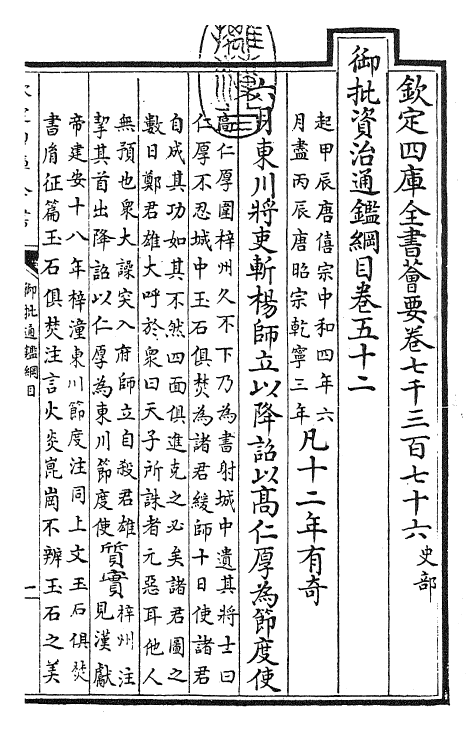 欽定四庫全書薈要卷七千三百七十六史部
御批資治通鑑綱目卷五十二
起甲辰唐僖宗中和四年六
月盡丙辰唐昭宗乾寧三年
凡十二年有奇
六月東川將吏斬楊師立以降詔以高仁厚為節度使
高仁厚圍梓州久不下乃為書射城中遺其將士曰
仁厚不忍城中玉石俱焚為諸君緩師十日使諸君
自成其功如其不然四面俱進克之必矣諸君圖之
數日鄭君雄大呼於衆曰天子所誅者元惡耳他人
無預也衆大譟突入府師立自殺君雄
挈其首出降詔以仁厚為東川節度使
質實
梓州注
見漢獻
帝建安十八年梓潼東川節度注同上文玉石俱焚
書胤征篇玉石俱焚注言火炎崑崗不辨玉石之美
御批通鑑綱目
一